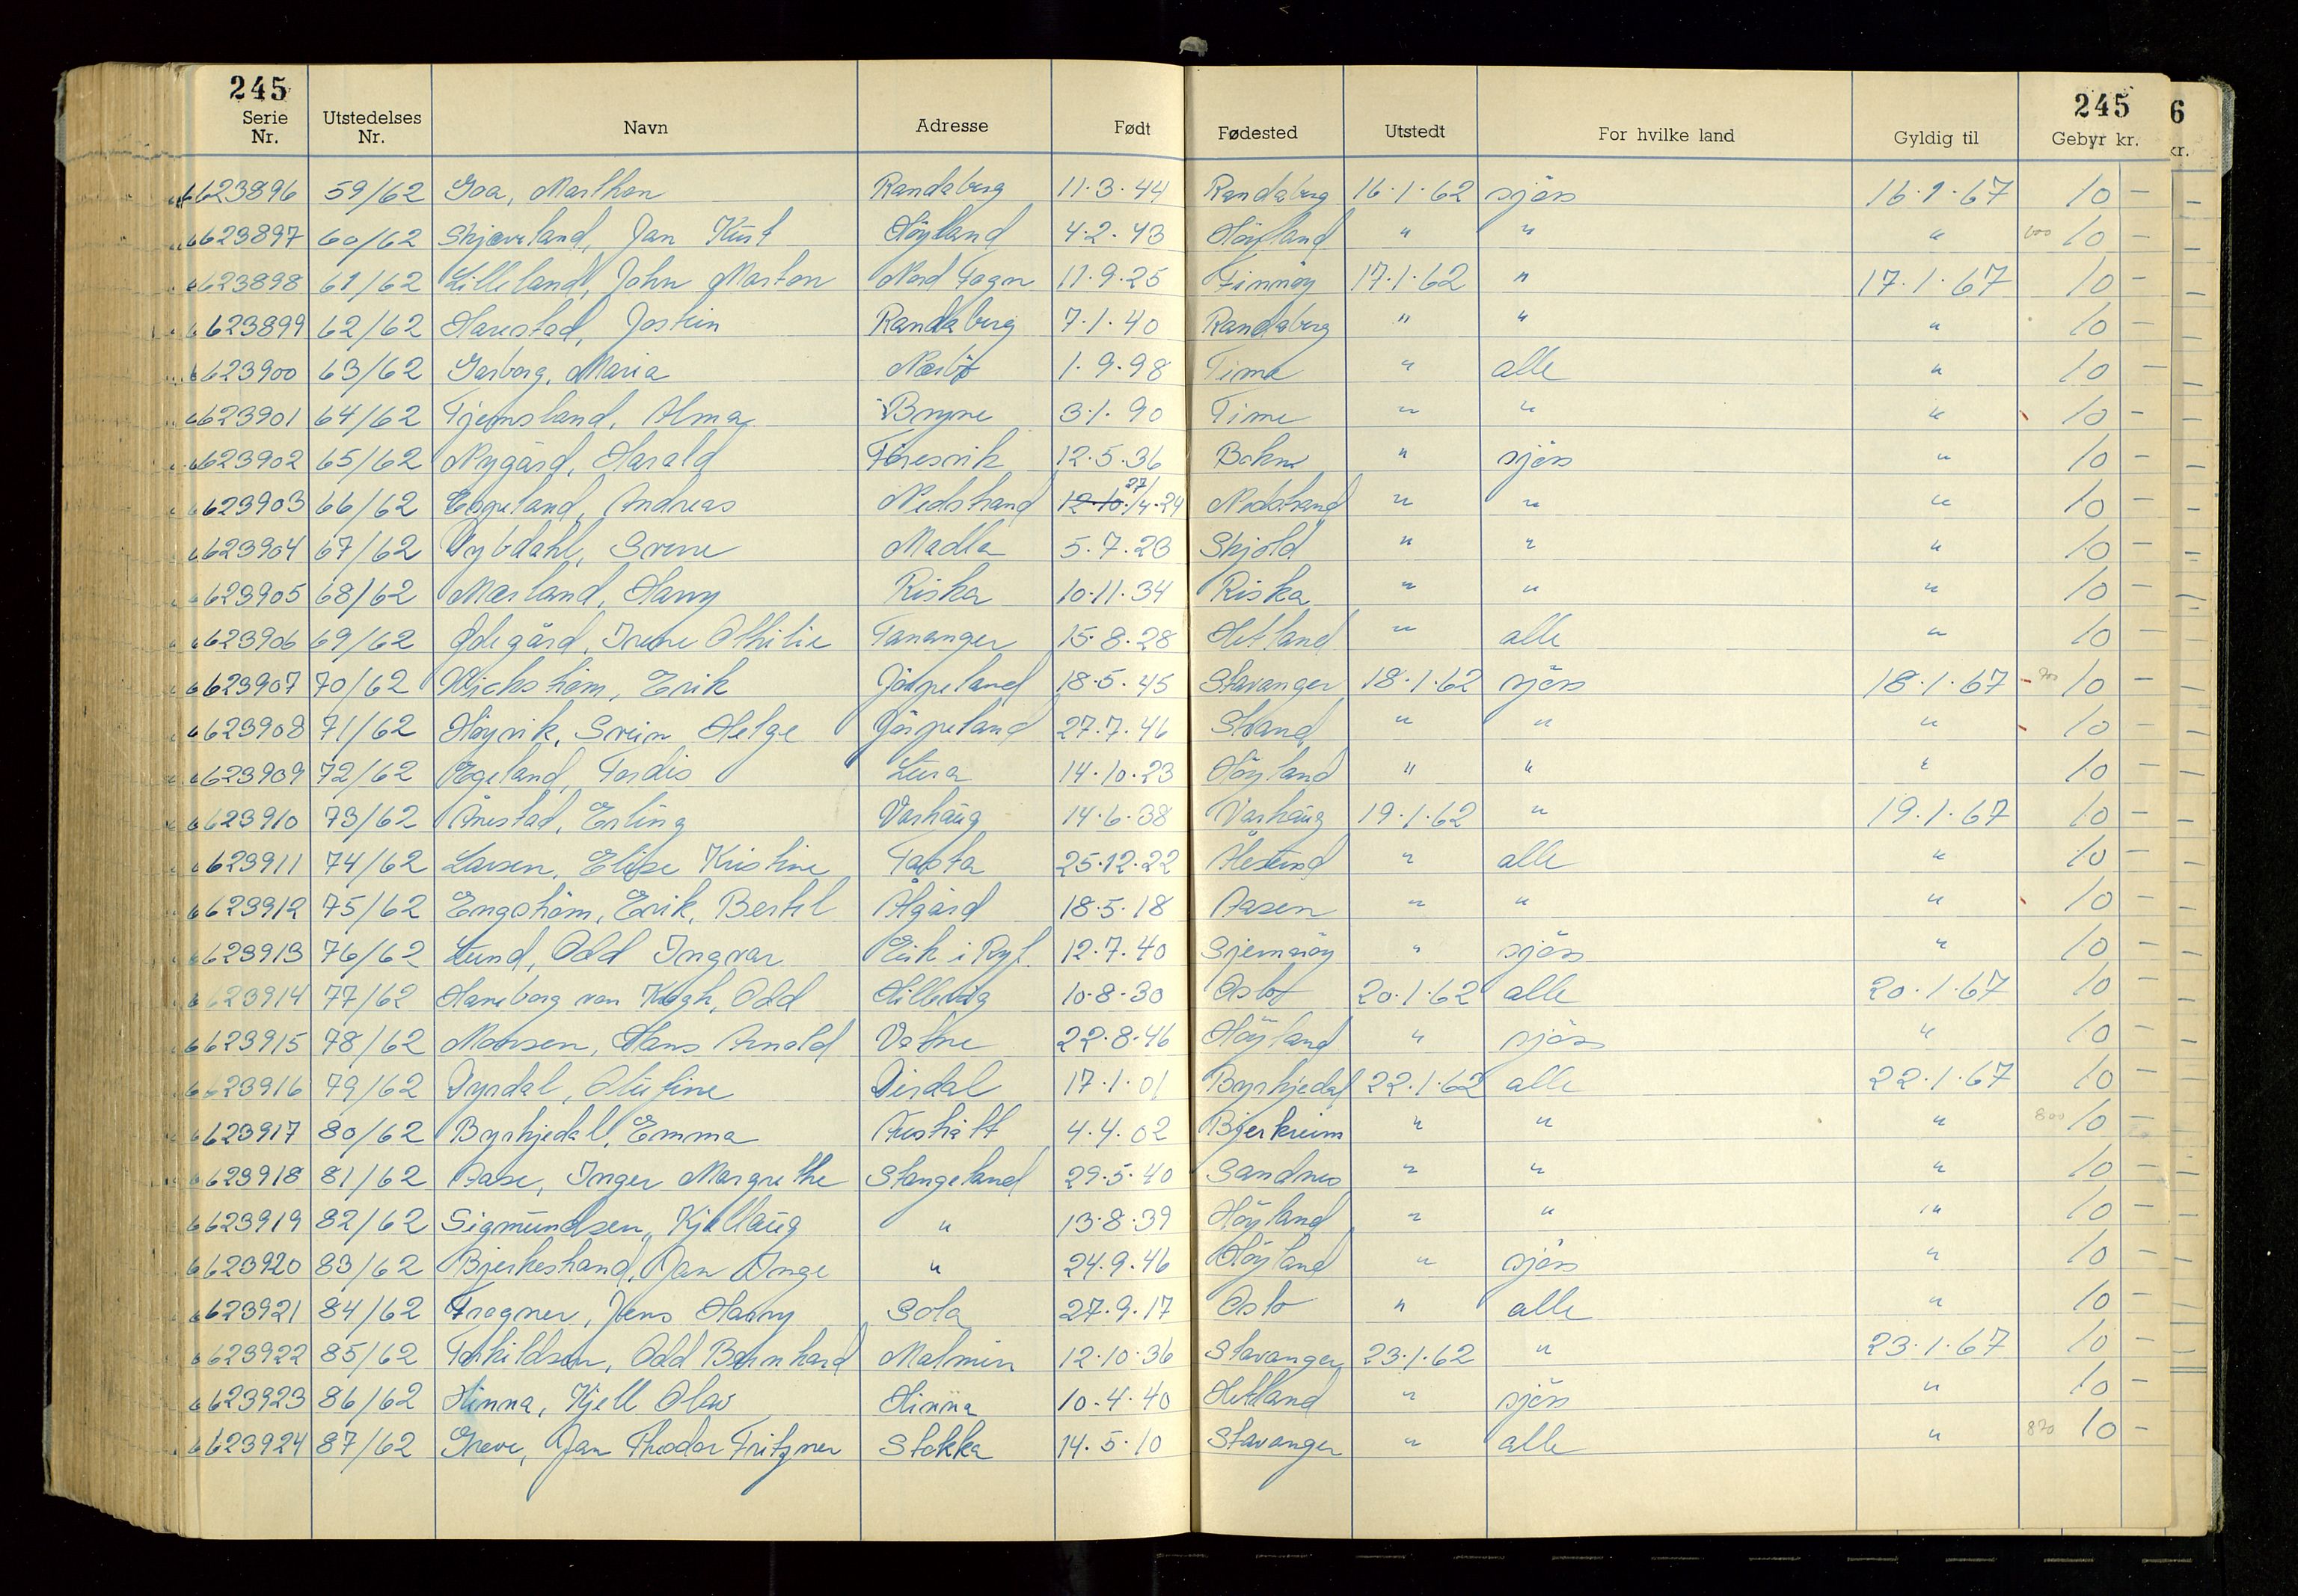 245 245 6
Serie Nr. Utstedelses Nr. Navn Adresse Født Fødested Utstedt For hvilke land Gyldig til Gebyr kr. kr.
6623896 59/62 Goa, Marthon Randaberg 11.3.44 Randaberg 16.1.62 sjøs 16.1.67 10 –
6623897 60/62 Skjæveland, Jan Kurt Höyland 4.2.43 Höyland " " " 600 10 –
6623898 61/62 Lilleland, John Marton Nord Fogn 11.9.25 Finnöy 17.1.62 " 17.1.67 10 –
6623899 62/62 Harestad, Jostein Randaberg 7.1.40 Randaberg " " " 10 –
6623900 63/62 Garborg, Maria Nærbø 1.9.98 Time " alle " 10 –
6623901 64/62 Tjemsland, Alma Bryne 3.1.90 Time " " " 10 –
6623902 65/62 Nygård, HaraldFöresvik 12.5.36 Bokn " sjøs " 10 –
6623903 66/62 Espeland, Andreas Nedstrand 12.10. 27/4.24 Nedstrand " " " 10 –
6623904 67/62 Dybdahl, Svene Madla 5.7.23 Skjold " " " 10 –
6623905 68/62 Mæland, Harry Riska 10.11.34 Riska " " " 10 –
6623906 69/62 Ødegård, Irene Othilie Tananger 15.8.28 Hetland " alle " 10 –
6623907 70/62 Wickström, Erik Jörpeland 18.5.45 Stavanger 18.1.62 sjøs 18.1.67 10 –
6623908 71/62 Höyvik, Svein Helge Jörpeland 27.7.46 Strand " " " 10 –
6623909 72/62 Egeland, Tordis Lura 14.10.23 Höyland " " " 10 –
6623910 73/62 Årrestad, Erling Varhaug 14.6.38 Varhaug 19.1.62 " 19.1.67 10 –
6623911 74/62 Larsen, Elise Kristine Tasta 25.12.22 Ålesund " alle " 10 –
6623912 75/62 Engström, Erik, Bertil Ålgård 18.5.18 Aasen " " " 10 –
6623913 76/62 Lund, Odd Ingvar Eik i Ryf. 12.7.40 Sjernaröy " sjøs " 10 –
6623914 77/62 Hareborg van Kogh, Odd Hillevåg 10.8.30 Oslo 20.1.62 alle 20.1.67 10 –
6623915 78/62 Monsen, Hans Arnold Vatne 22.8.46 Höyland " sjøs " 10 –
6623916 79/62 Dyrdal, Olufine Dirdal 17.1.01 Byrkjedal 22.1.62 alle 22.1.67 10 –
6623917 80/62 Byrkjedal, Emma 4.4.02 Bjerkreim " " " 800 10 –
6623918 81/62 Aase, Inger Margrethe Stangeland 29.5.40 Sandnes " " " 10 –
6623919 82/62 Sigmundsen, Kjellaug " 13.8.39 Höyland " " " 10 –
6623920 83/62 Bjerkestrand, Jan Inge " 24.9.46 Höyland " sjøs " 10 –
6623921 84/62 Frogner, Jens Harry Sola 27.9.17 Oslo " alle " 10 –
6623922 85/62 Torkildsen, Odd Bernhard Malmin 12.10.36 Stavanger 23.1.62 " 23.1.67 10 –
6623923 86/62 Hinna, Kjell Olav Hinna 10.4.40 Hetland " sjøs " 10 –
6623924 87/62 Greve, Jan Thodor Fritzner Stokka 14.5.10 Stavanger " alle " 820 10 –